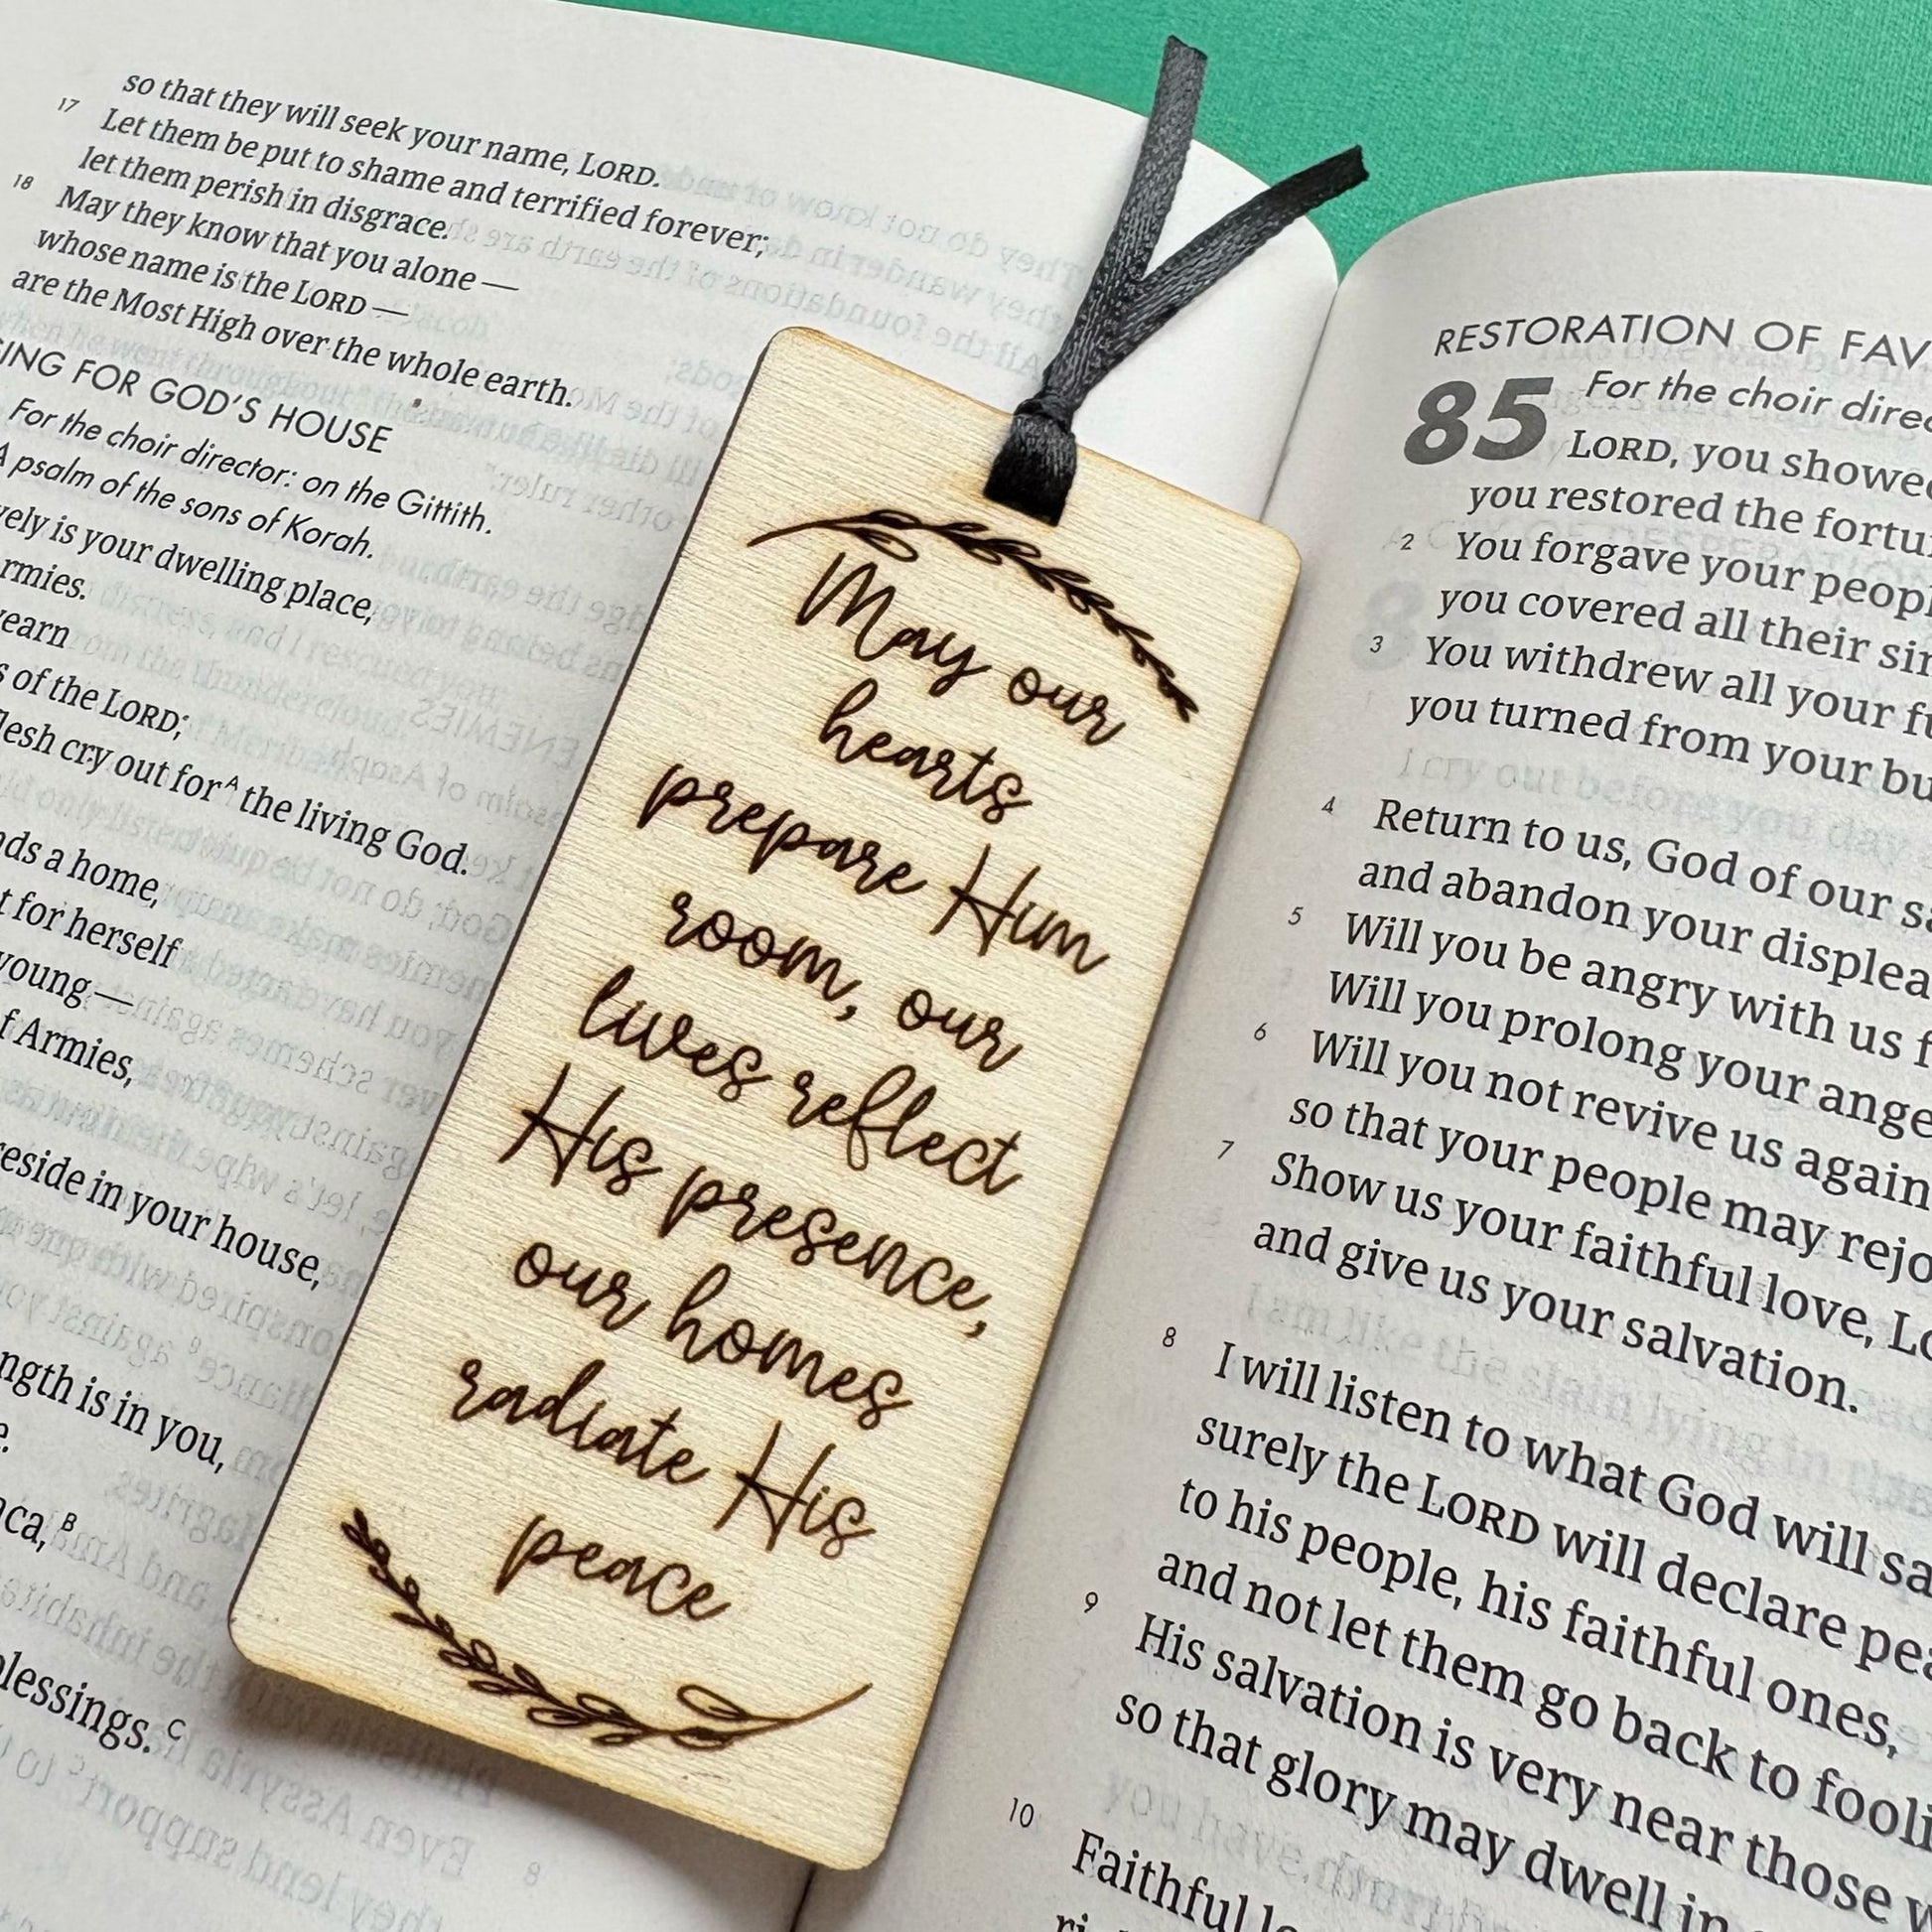 so that they will seek your name, LORD.
17 Let them be put to shame and terrified forever;
let them perish in disgrace.
18 May they know that you alone —
whose name is the LORD —
are the Most High over the whole earth.
FOR GOD'S HOUSE
For the choir director: on the Gittith.
A psalm of the sons of Korah.
is your dwelling place,
of the LORD;
cry out for A the living God.
a home,
for herself
young —
Armies,
in your house,
is in you,
B
C
May our
hearts
prepare Him
room, our
lives reflect
His presence,
our homes
radiate His
peace
RESTORATION OF
85 For the choir
LORD, you
you restored the
2 You forgave your
you covered all their
3 You withdrew all your
you turned from your
4 Return to us, God of our
and abandon your
5 Will you be angry with us
Will you prolong your
6 Will you not revive us again
so that your people may
7 Show us your faithful love,
and give us your salvation.
8 I will listen to what God will
surely the LORD will declare
to his people, his faithful ones,
and not let them go back to
9 His salvation is very near those
so that glory may dwell in
10 Faithful